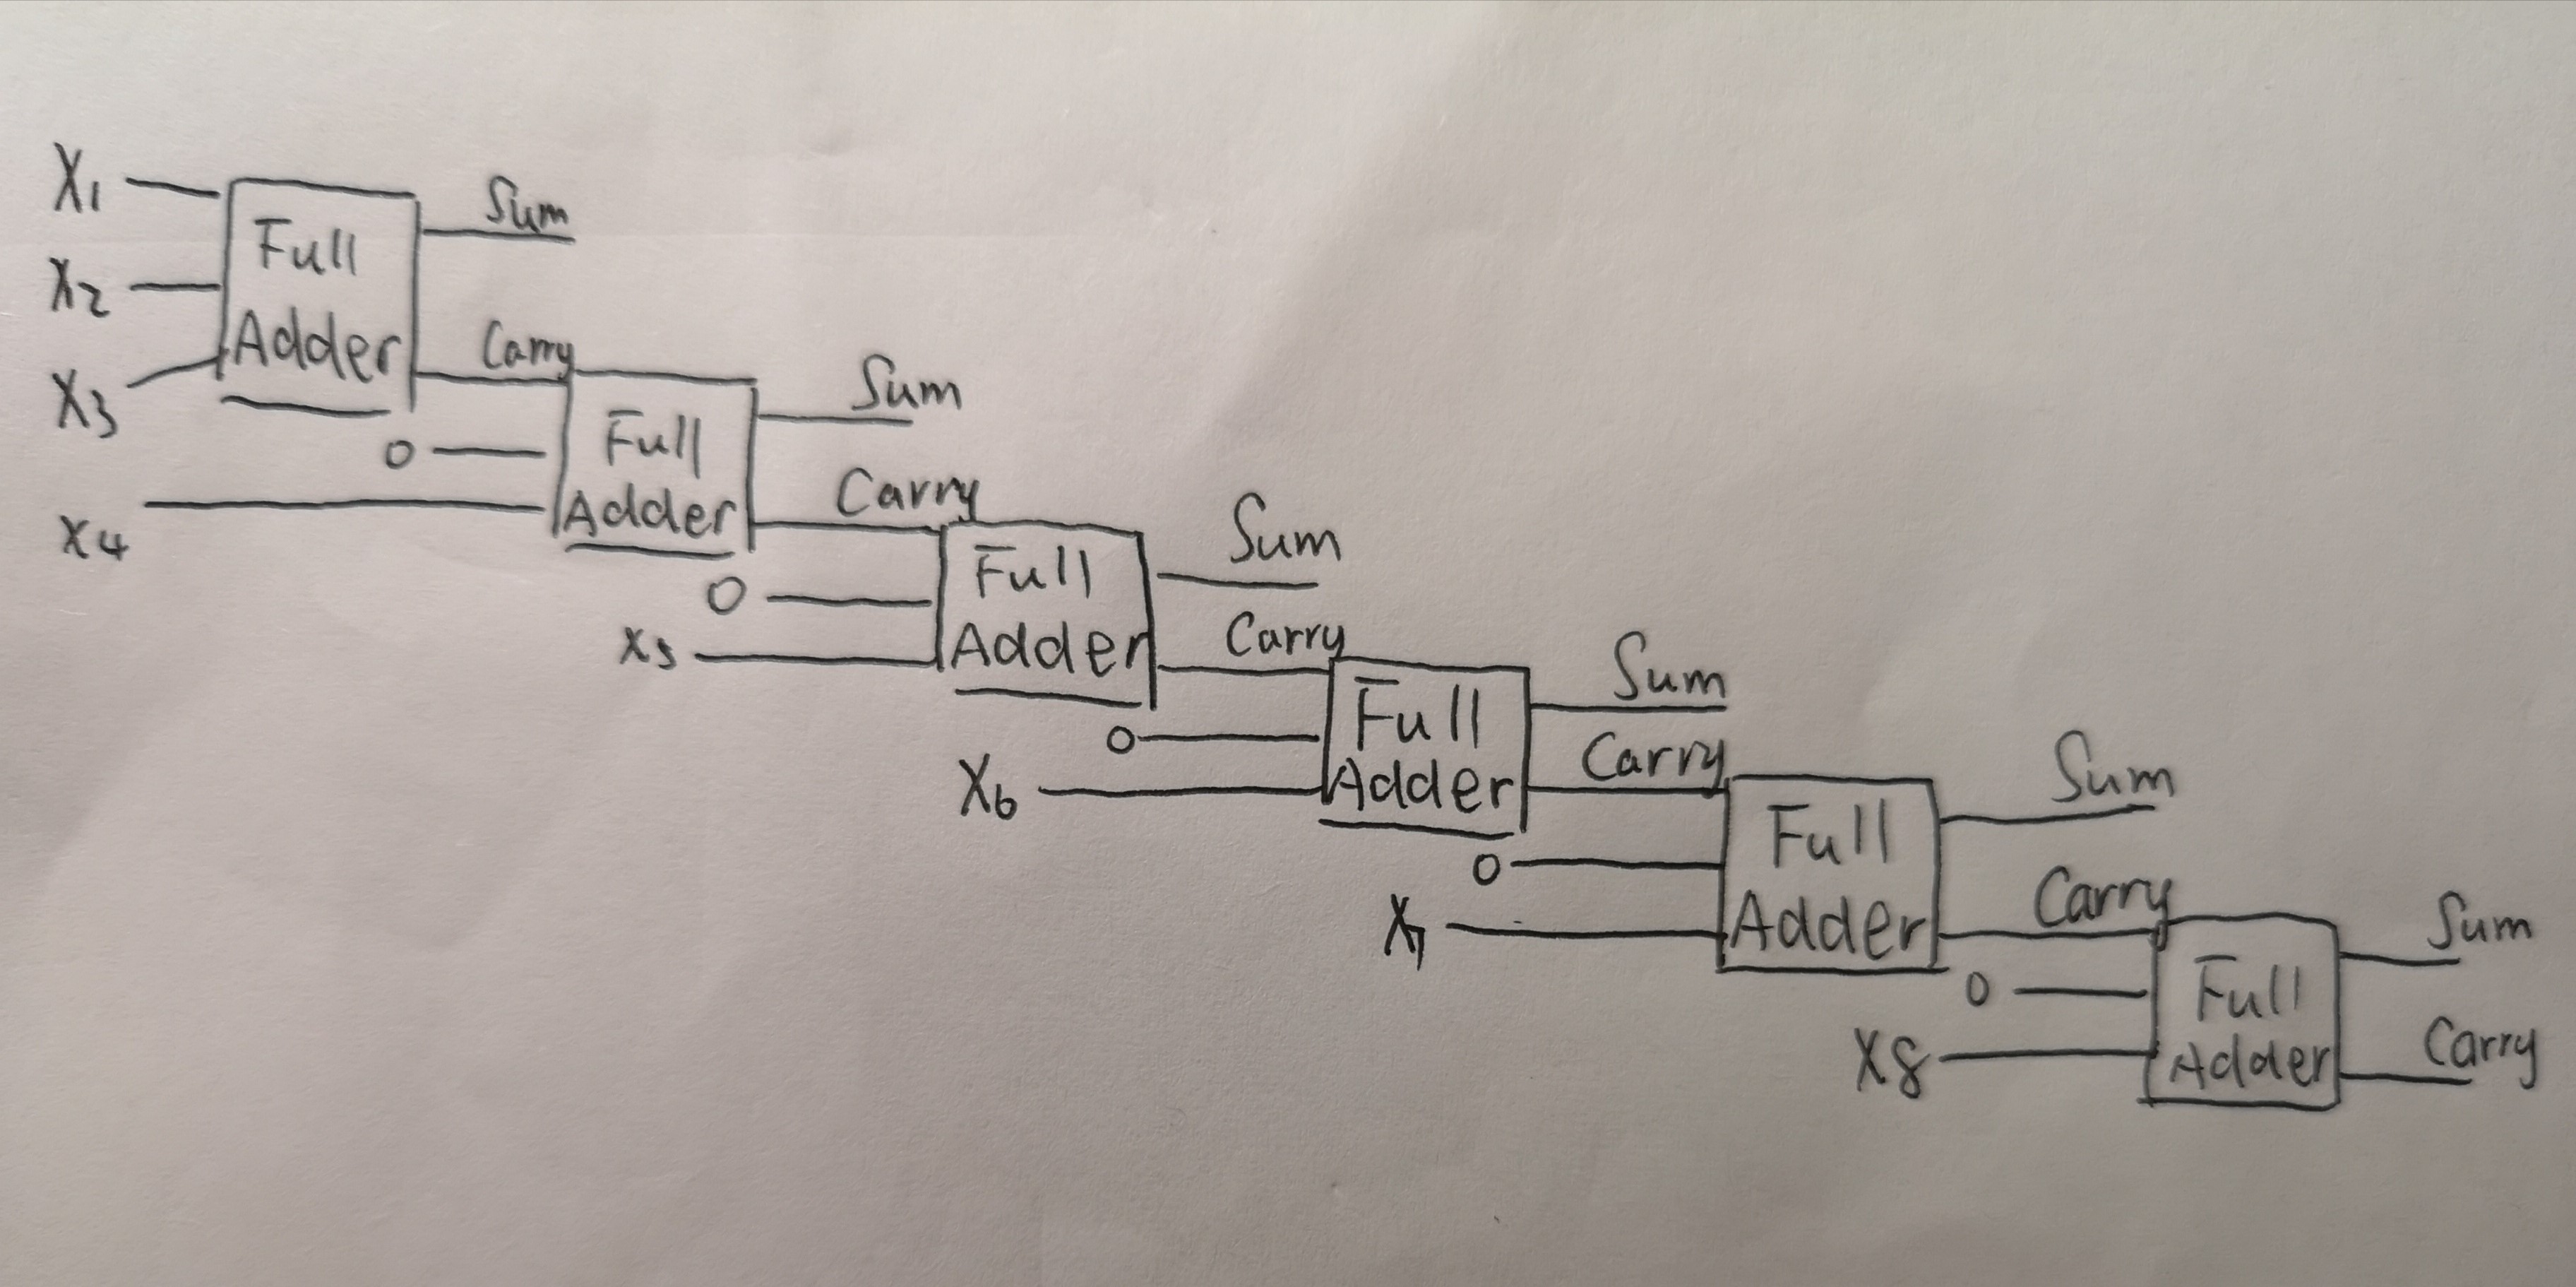 X1
X2
X3
Full
Adder
Sum
Carry
0
X4
Full
Adder
Sum
Carry
0
X5
Full
Adder
Sum
Carry
0
X6
Full
Adder
Sum
Carry
0
X7
Full
Adder
Sum
Carry
0
X8
Full
Adder
Sum
Carry